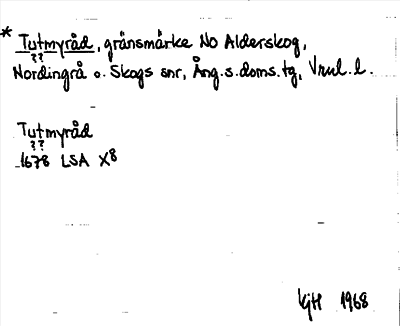 * Tutmyråd, gränsmärke NO Alderskog,
??
Nordingrå o. Skogs snr, Ång.s.doms.tg, Vnul.l.
Tutmyråd
??
1678 LSA X8
KjH 1968